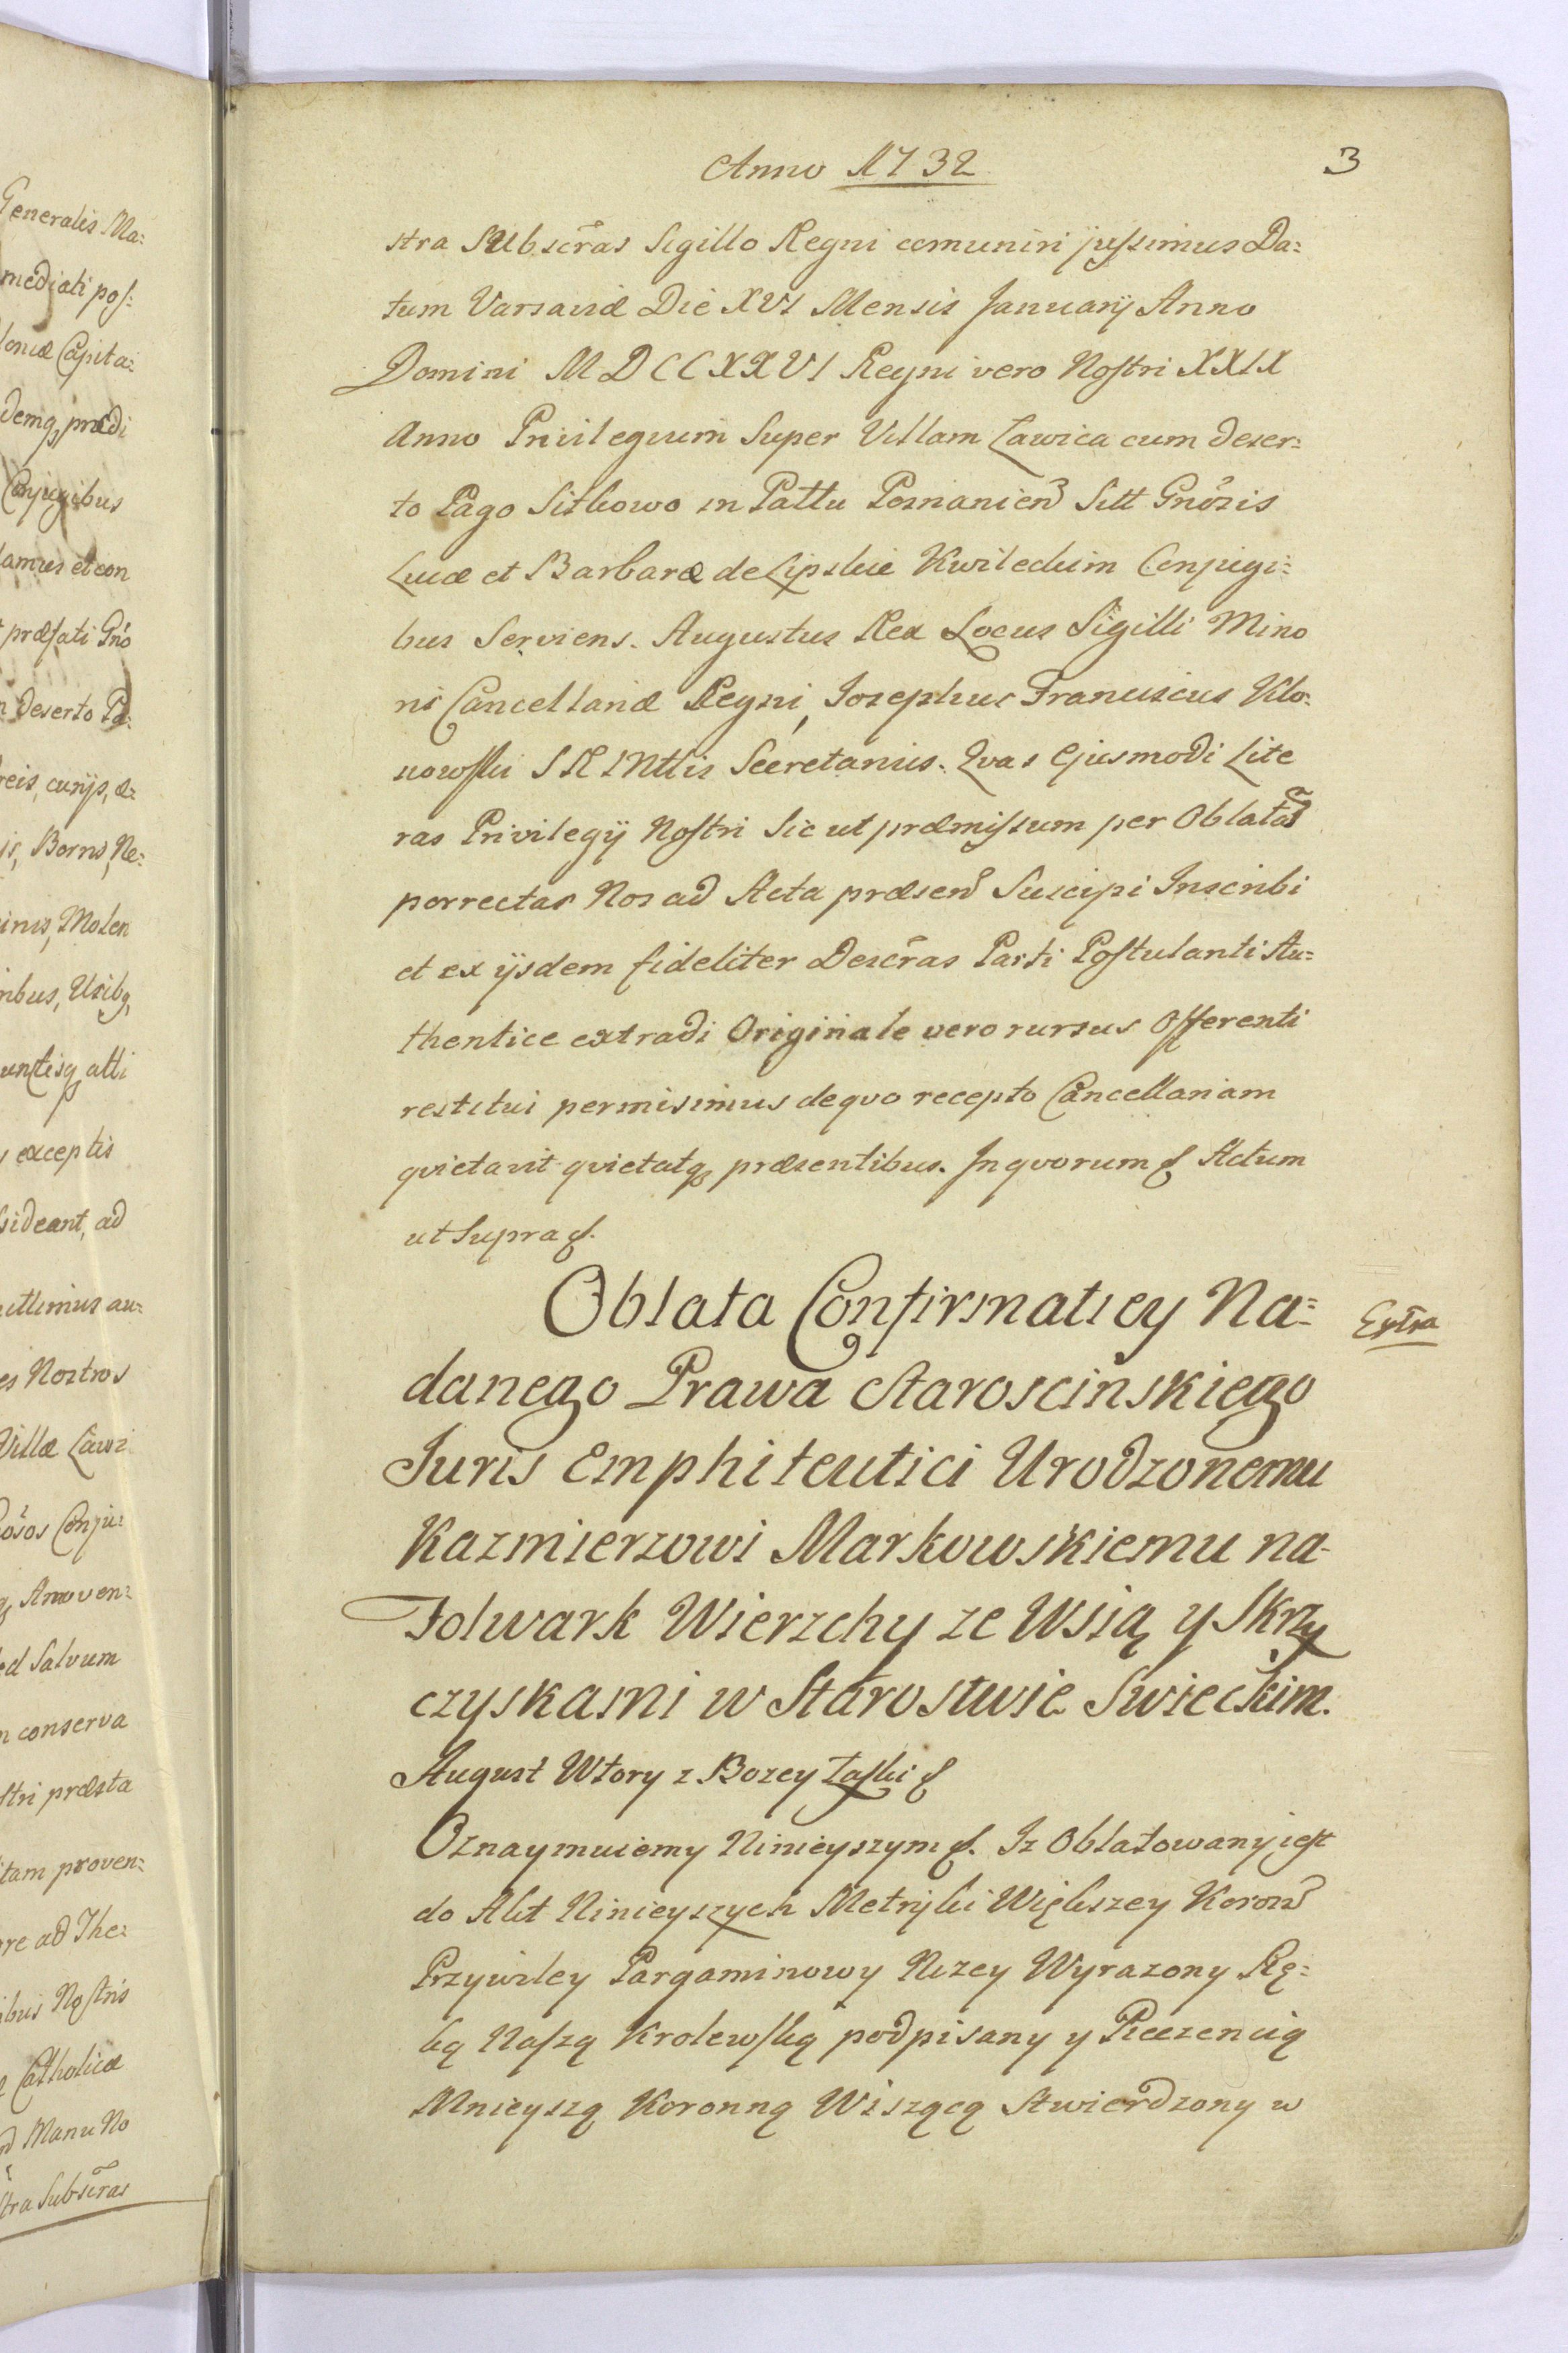 Generalis Ma:
mediati pos:
loniæ Capita:
demq prædi
Conjugibus
lamus et con
præfati Gnō
n Deserto Pa:
reis, curijs, a:
is, Borris, Ne:
inis, Molen
nibus, Usibq
unctisq alij
s exceptis
sideant, ad
ittimus au:
es Nostros
Villæ Ławi
osos Conju:
q Amoven:
ed Salvum
m conserva
stri præsta
itam proven:
re ad The:
ibus Nostris
Catholicæ
d Manu No
stra Subscr̃as
Anno 1732
3
stra Subscr̃as Sigillo Regni comuniri jussimus Da:
tum Varsaviæ Die XVI Mensis Januarij Anno
Domini MDCCXXVI Regni vero Nostri XXIX
Anno Privilegium Super Villam Ławica cum deser:
to Pago Sitkowo in Pałtu Posnanien Sitt Gnōsis
Lucæ et Barbaræ de Lipskie Kwileckim Conjugi:
bus Serviens. Augustus Rex Locus Sigilli Mino
ris Cancellariæ Regni, Josephus Franciscus Kło:
nowski S R M tis Secretarius. Qvas Ejusmodi Lite
ras Privilegij Nostri Sic ut præmissum per Oblatā
porrectas Nos ad Acta præsen Suscipi Inscribi
et ex ijsdem fideliter Descr̃as Parti Postulanti Au:
thentice extradi Originale vero rursus Offerenti
restitui permisimus de qvo recepto Cancellariam
qvietavit qvietatq præsentibus. In qvorum &. Actum
ut Supra &.
Oblata Confirmatiey Na:
Extra
danego Prawa Starościnskiego
Juris Emphiteutici Urodzonemu
Kazmierzowi Markowskiemu na
Folwark Wierzchy ze Wsią y Skrzy
czyskami w Starostwie Swieckim.
August Wtory z Bozey Łaski &
Oznaymuiemy Ninieyszym &. Iz Oblatowany jest
do Akt Ninieyszych Metryki Większey Koron
Przywiley Pargaminowy Nizey Wyrazony Rę:
ką Naszą Krolewską podpisany y Pieczencią
Mnieyszą Koronną Wiszącą Stwierdzony w